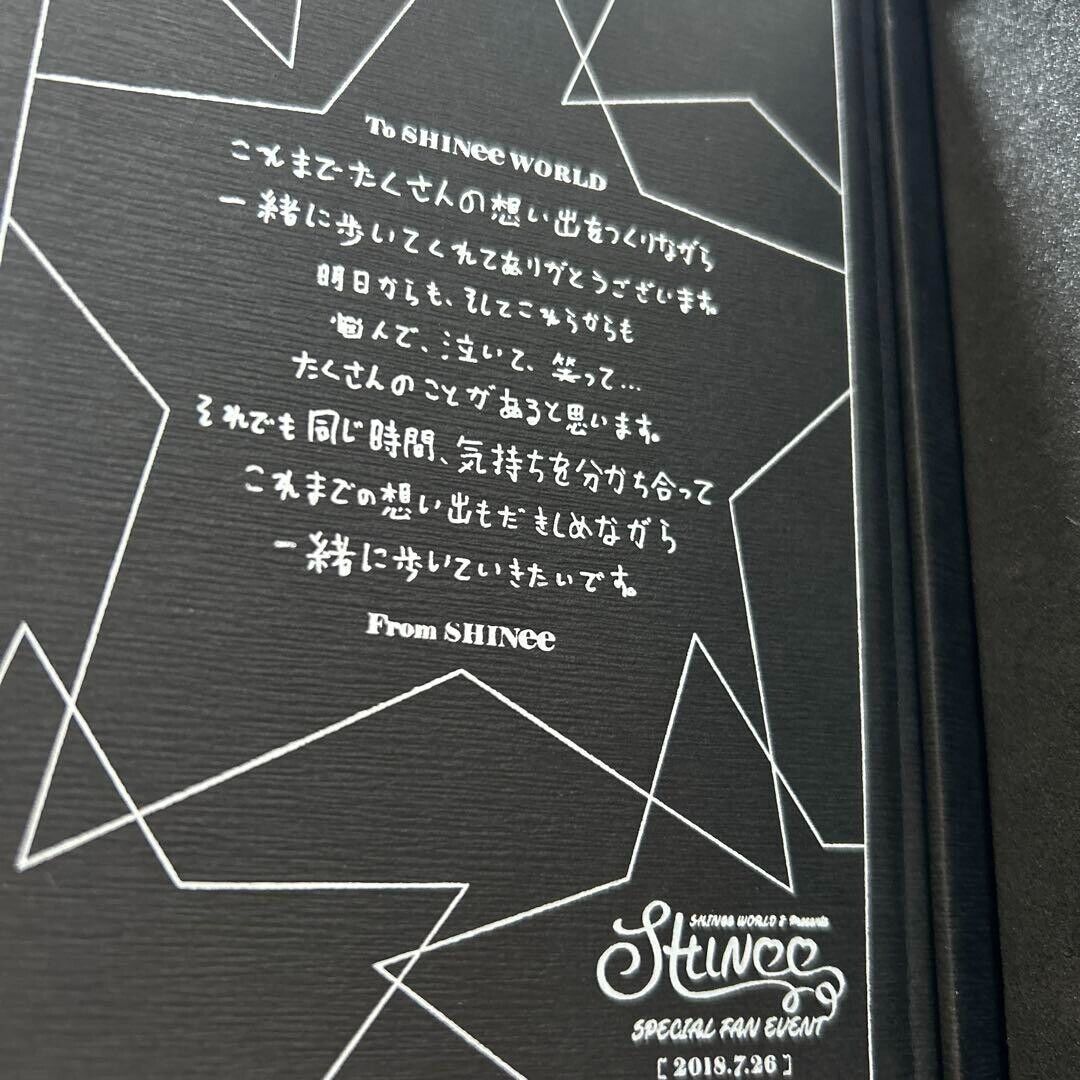 To SHINee WORLD
これまでたくさんの想い出をつくりながら
一緒に歩いてくれてありがとうございます。
明日からも、そしてこれからも
悩んで、泣いて、笑って...
たくさんのことがあると思います。
それでも同じ時間、気持ちを分かち合って
これまでの想い出もだきしめながら
一緒に歩いていきたいです。
From SHINee
SHINee WORLD J Presents
SHINee
SPECIAL FAN EVENT
[ 2018.7.26 ]